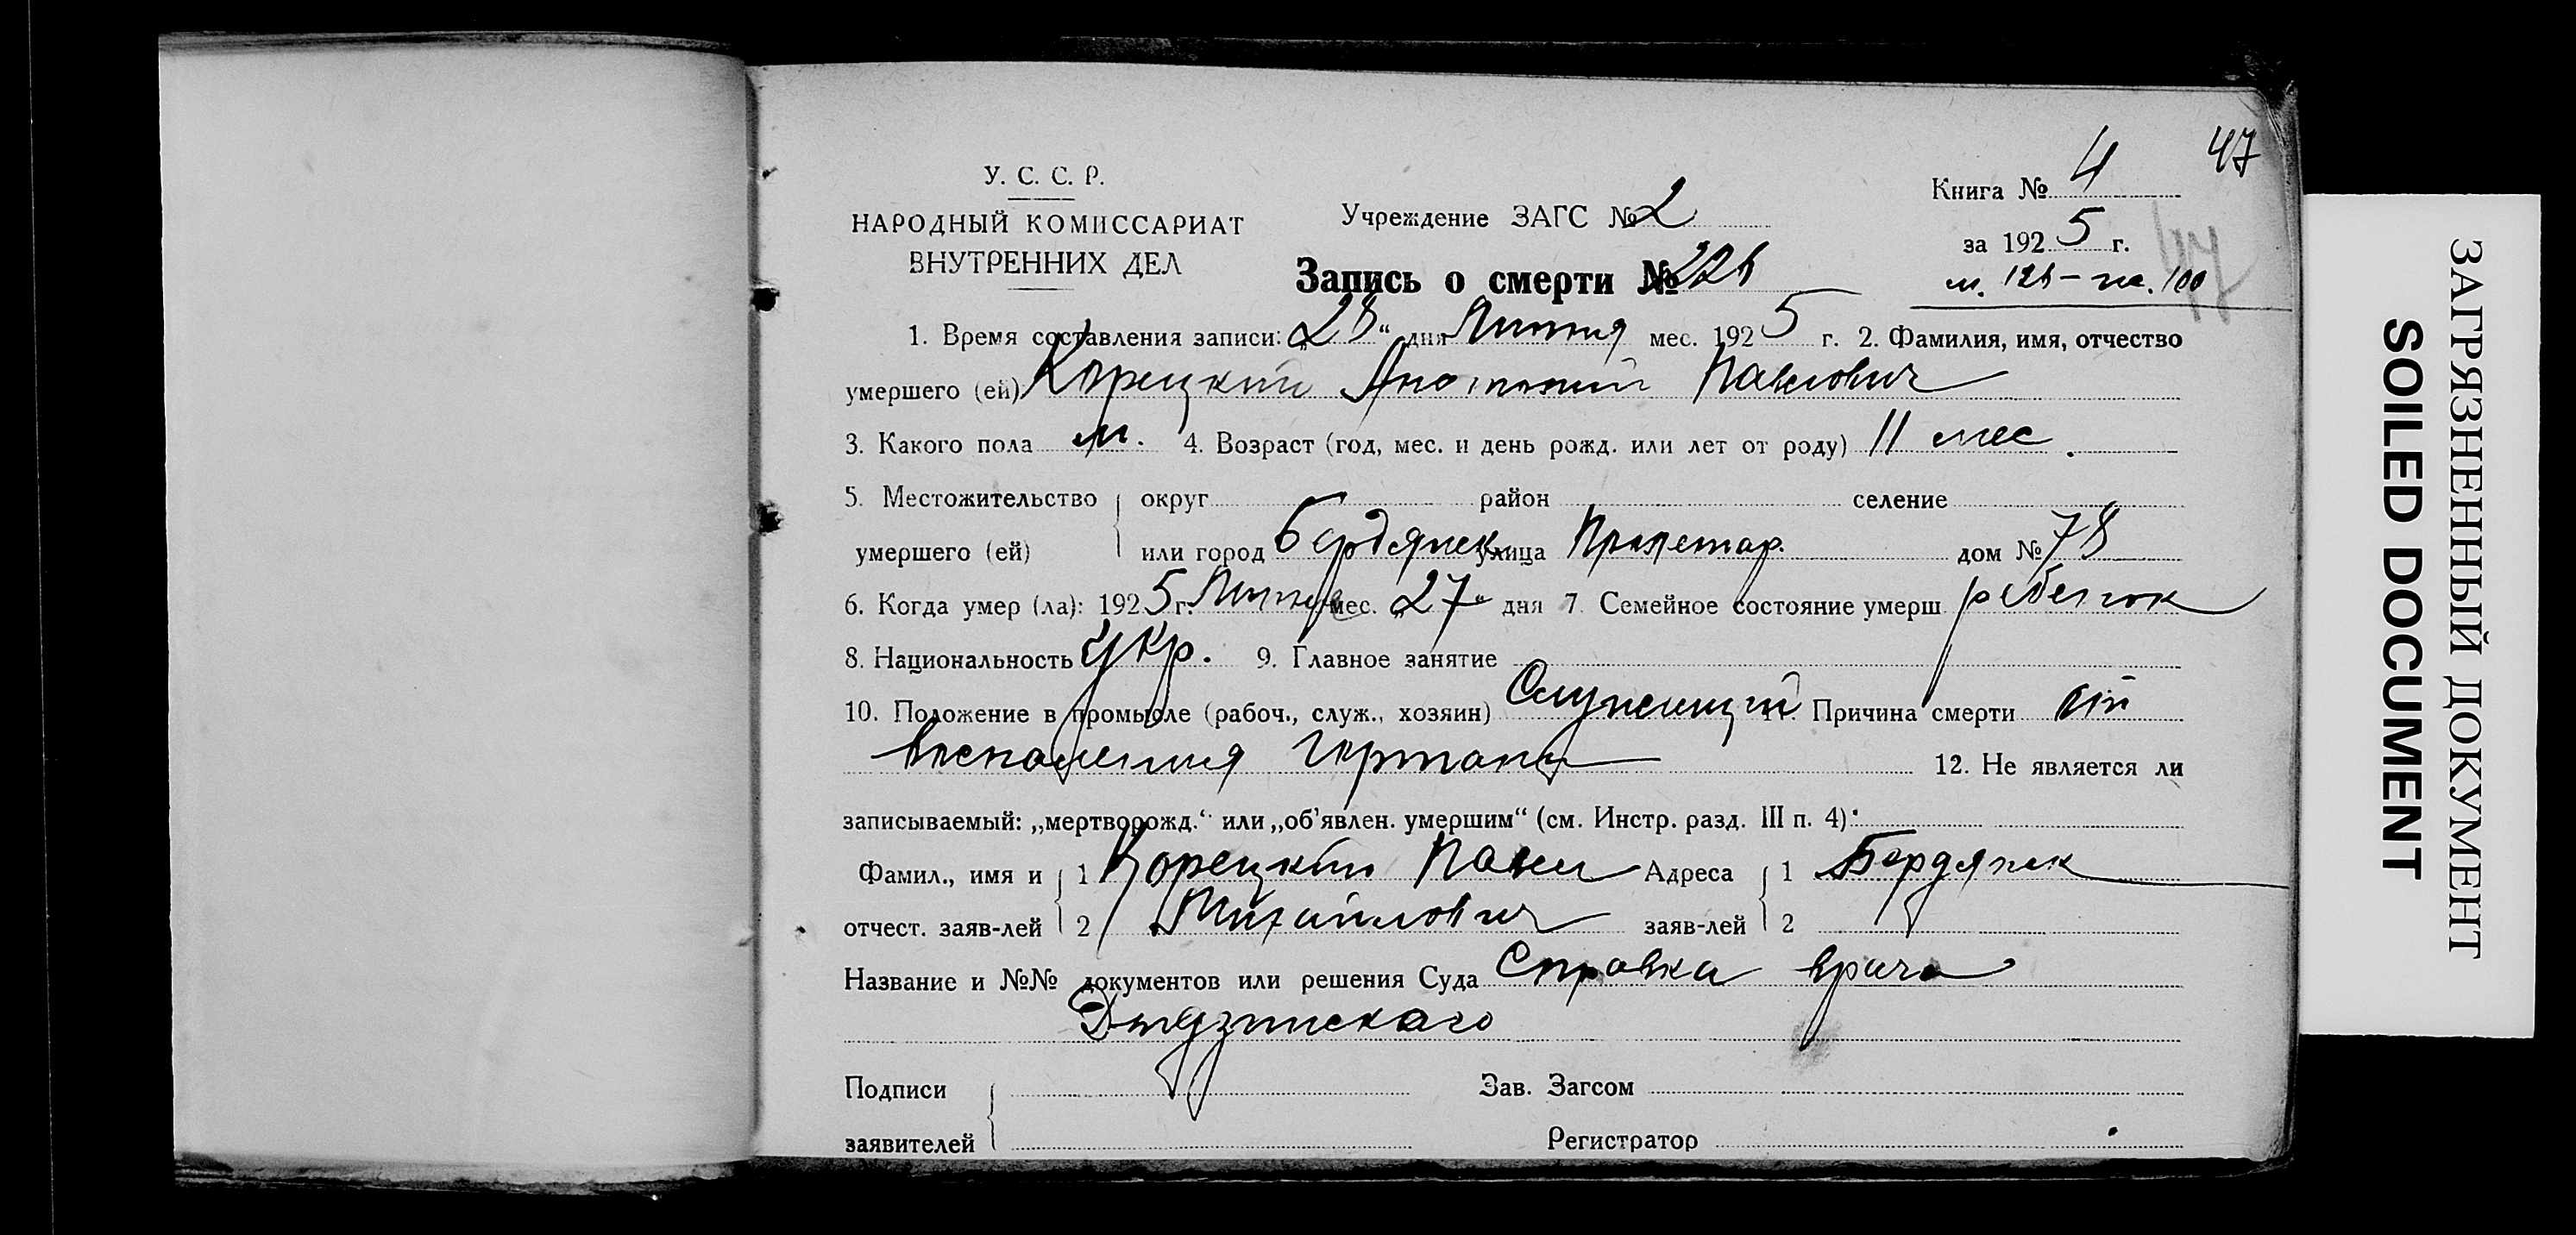 47
У. С. С. Р.
НАРОДНЫЙ КОМИССАРИАТ
ВНУТРЕННИХ ДЕЛ
Учреждение ЗАГС № 2
Запись о смерти № 226
Книга № 4
за 1925 г.
м. 126 – ж. 100
47
1. Время составления записи: „28“ дня мес. 1925 г. 2. Фамилия, имя, отчество
умершего (ей) Корецкий Анатолий Павлович
3. Какого пола м. 4. Возраст (год, мес. и день рожд. или лет от роду) 11 мес.
5. Местожительство округ район селение
умершего (ей) или город Бердянск улица Пролетар. дом № 78
6. Когда умер (ла): 1925 г. мес. „27“ дня 7. Семейное состояние умерш. ребенок
8. Национальность укр. 9. Главное занятие
10. Положение в промысле (рабоч., служ., хозяин) Служащий 11. Причина смерти от
воспаления гортани 12. Не является ли
записываемый: „мертворожд.“ или „об'явлен. умершим“ (см. Инстр. разд. III п. 4):
Фамил., имя и 1 Корецкий Павел Адреса 1 Бердянск
отчест. заяв-лей 2 Михайлович заяв-лей 2
Название и №№ документов или решения Суда Справка врача
Подписи Зав. Загсом
заявителей Регистратор
ЗАГРЯЗНЕННЫЙ ДОКУМЕНТ
SOILED DOCUMENT